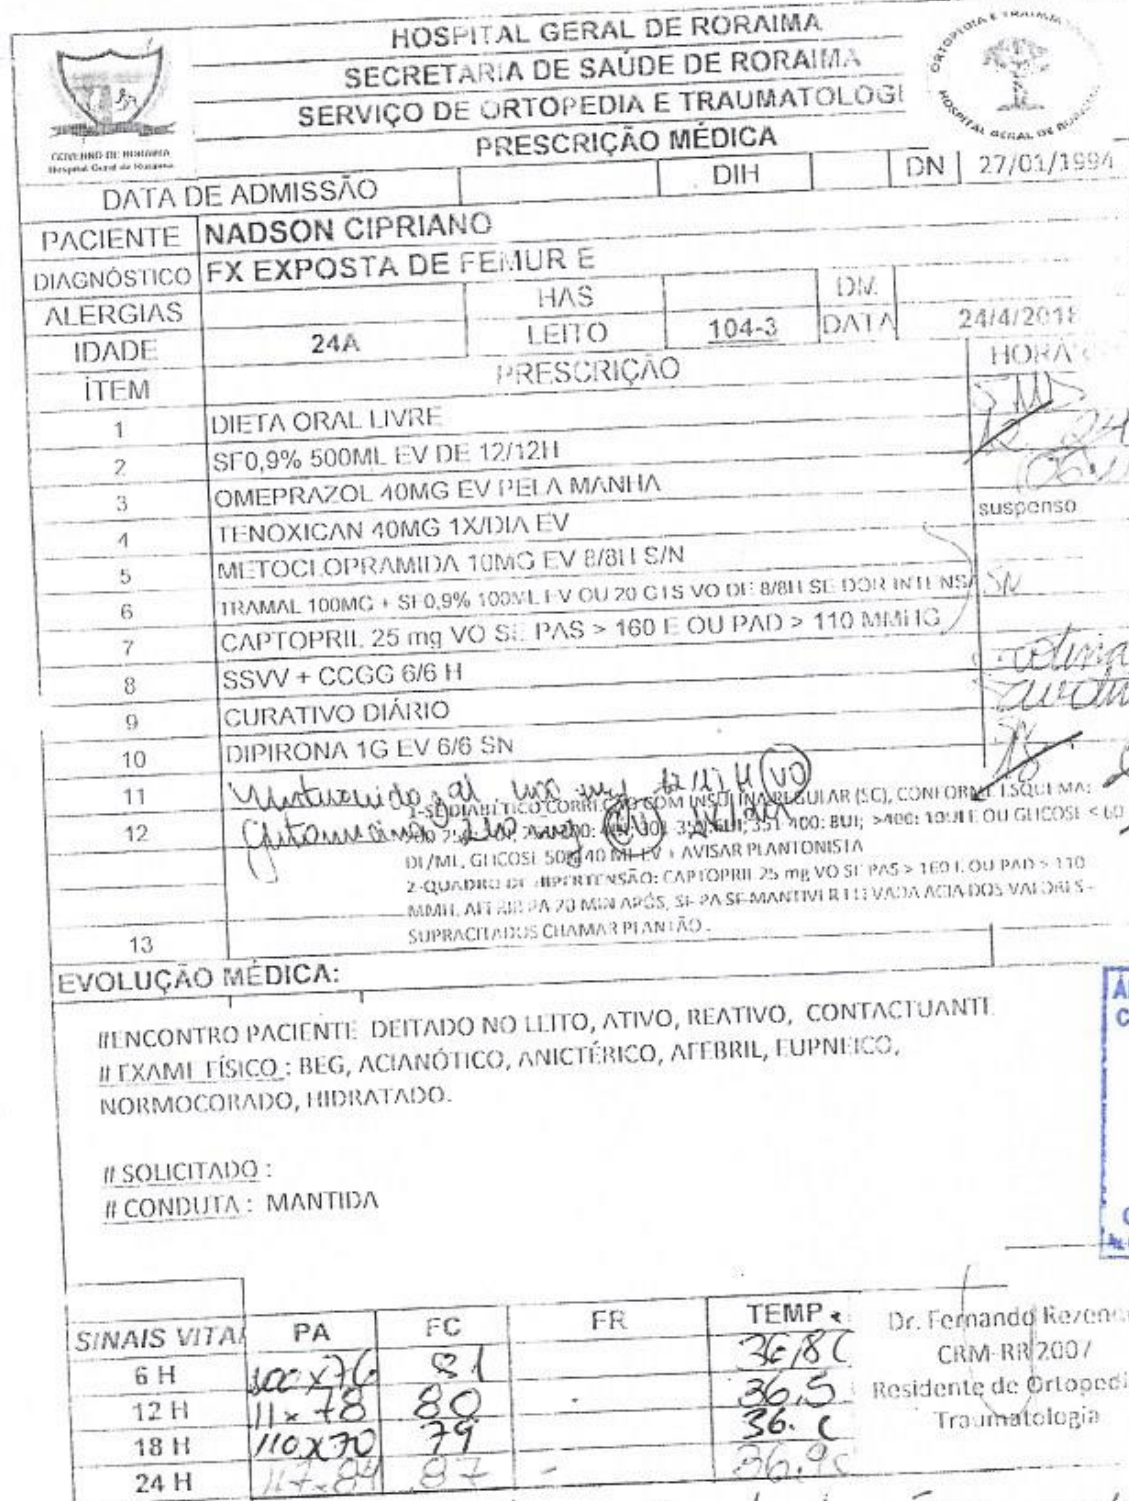 HOSPITAL GERAL DE RORAIMA
SECRETARIA DE SAÚDE DE RORAIMA
SERVIÇO DE ORTOPEDIA E TRAUMATOLOGI
PRESCRIÇÃO MÉDICA
GOVERNO DE RORAIMA
Hospital Geral de Roraima
ORTOPEDIA E TRAUMA
HOSPITAL GERAL DE
DATA DE ADMISSÃO DIH DN 27/01/1994
PACIENTE NADSON CIPRIANO
DIAGNÓSTICO FX EXPOSTA DE FEMUR E
ALERGIAS HAS DM
IDADE 24A LEITO 104-3 DATA 24/4/2018
ÍTEM PRESCRIÇÃO HORA
1 DIETA ORAL LIVRE
2 SF0,9% 500ML EV DE 12/12H 12 24
3 OMEPRAZOL 40MG EV PELA MANHA
4 TENOXICAN 40MG 1X/DIA EV suspenso
5 METOCLOPRAMIDA 10MG EV 8/8H S/N
6 TRAMAL 100MG + SF0,9% 100ML EV OU 20 GTS VO DE 8/8H SE DOR INTENSA SN
7 CAPTOPRIL 25 mg VO SE PAS > 160 E OU PAD > 110 MMHG
8 SSVV + CCGG 6/6 H
9 CURATIVO DIÁRIO
10 DIPIRONA 1G EV 6/6 SN SN
11 12/12 H (VO) 18
12
1-SE DIABÉTICO CORREÇÃO COM INSULINA REGULAR (SC), CONFORME ESQUEMA:
351-400: 8UI; >400: 10UI E OU GLICOSE < 60
DL/ML, GLICOSE 50% 40 ML EV + AVISAR PLANTONISTA
2-QUADRO DE HIPERTENSÃO: CAPTOPRIL 25 mg VO SE PAS > 160 E OU PAD > 110
MMH, AFERIR PA 20 MIN APÓS, SE PA SE MANTIVER ELEVADA ACIA DOS VALORES
13 SUPRACITADOS CHAMAR PLANTÃO.
EVOLUÇÃO MÉDICA:
#ENCONTRO PACIENTE DEITADO NO LEITO, ATIVO, REATIVO, CONTACTUANTE
# EXAME FÍSICO : BEG, ACIANÓTICO, ANICTÉRICO, AFEBRIL, EUPNEICO,
NORMOCORADO, HIDRATADO.
# SOLICITADO :
# CONDUTA : MANTIDA
SINAIS VITAI PA FC FR TEMP
6 H 100x76 81 36,8C
12 H 11x78 80 36,5
18 H 110x70 79 36. C
24 H 87 - 36,9C
Dr. Fernando Rezen
CRM-RR 2007
Residente de Ortopedi
Traumatologia